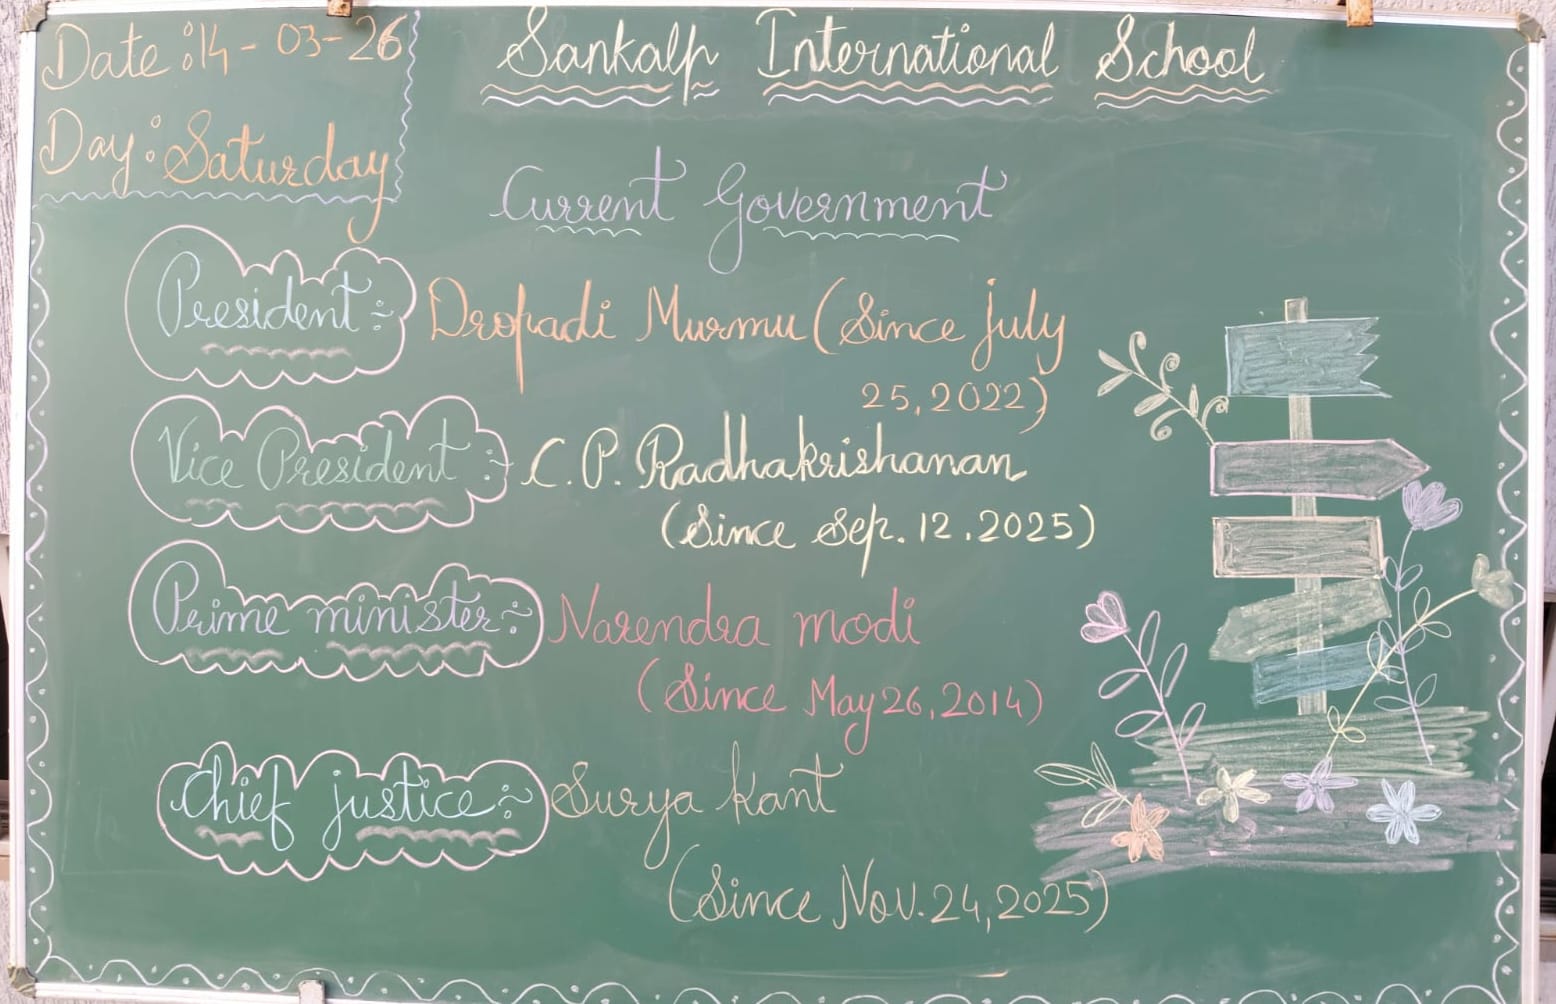 Date :14-03-26
Day: Saturday
Sankalp International School
Current Government
President:- Dropadi Murmu (Since July
25, 2022)
Vice President :- C. P. Radhakrishanan
(Since Sep. 12, 2025)
Prime minister:- Narendra modi
(Since May 26, 2014)
Chief justice:- Surya Kant
(Since Nov. 24, 2025)